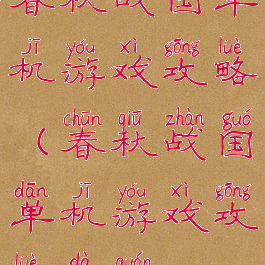 春秋战国单
jī yóu xì gōng lüè
机游戏攻略
chūn qiū zhàn guó
（春秋战国
dān jī yóu xì gōng
单机游戏攻
lüè dà quán